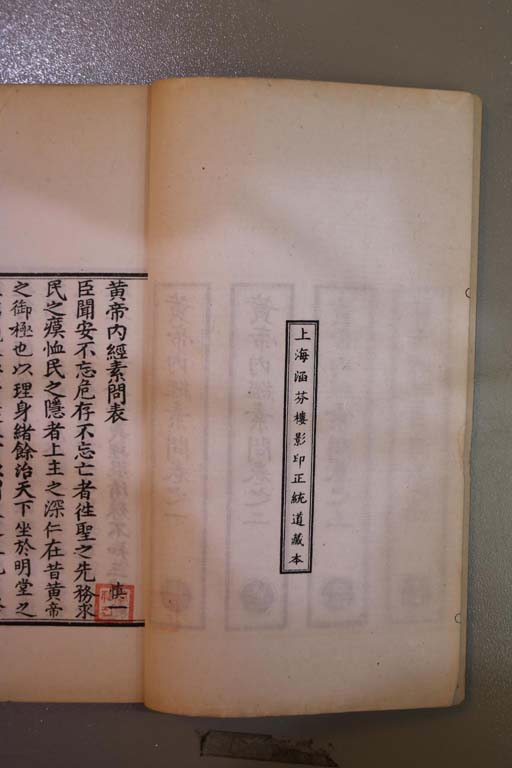 上海涵芬樓影印正統道藏本
黃帝內經素問表 慎一
臣聞安不忘危存不忘亡者徃聖之先務求
民之瘼恤民之隱者上主之深仁在昔黃帝
之御極也以理身緒餘治天下坐於明堂之